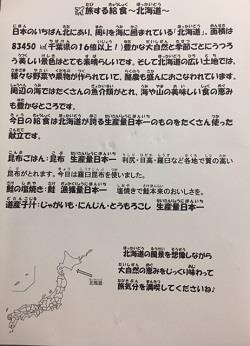 旅する給食～北海道～
日本のいちばん北にあり、周りを海に囲まれている「北海道」。面積は
83450 ㎢（千葉県の16倍以上！）豊かな大自然と季節ごとにうつろ
う美しい景色はとても素晴らしいです。そして北海道の広い土地では、
様々な野菜や果物が作られていて、酪農も盛んにおこなわれています。
周辺の海ではたくさんの魚介類がとれ、海や山の美味しい食の恵み
も豊かなところです。
今日の給食は北海道が誇る生産量日本一のものをたくさん使った
献立です。
昆布ごはん：昆布 生産量日本一 利尻・日高・羅臼など各地で質の高い
昆布がとれます。今日は羅臼昆布を使いました。
鮭の塩焼き：鮭 漁獲量日本一 塩焼きで鮭本来のおいしさを。
道産子汁：じゃがいも・にんじん・とうもろこし 生産量日本一
北海道
北海道の風景を想像しながら
大自然の恵みをじっくり味わって
旅気分を満喫してくださいね♪